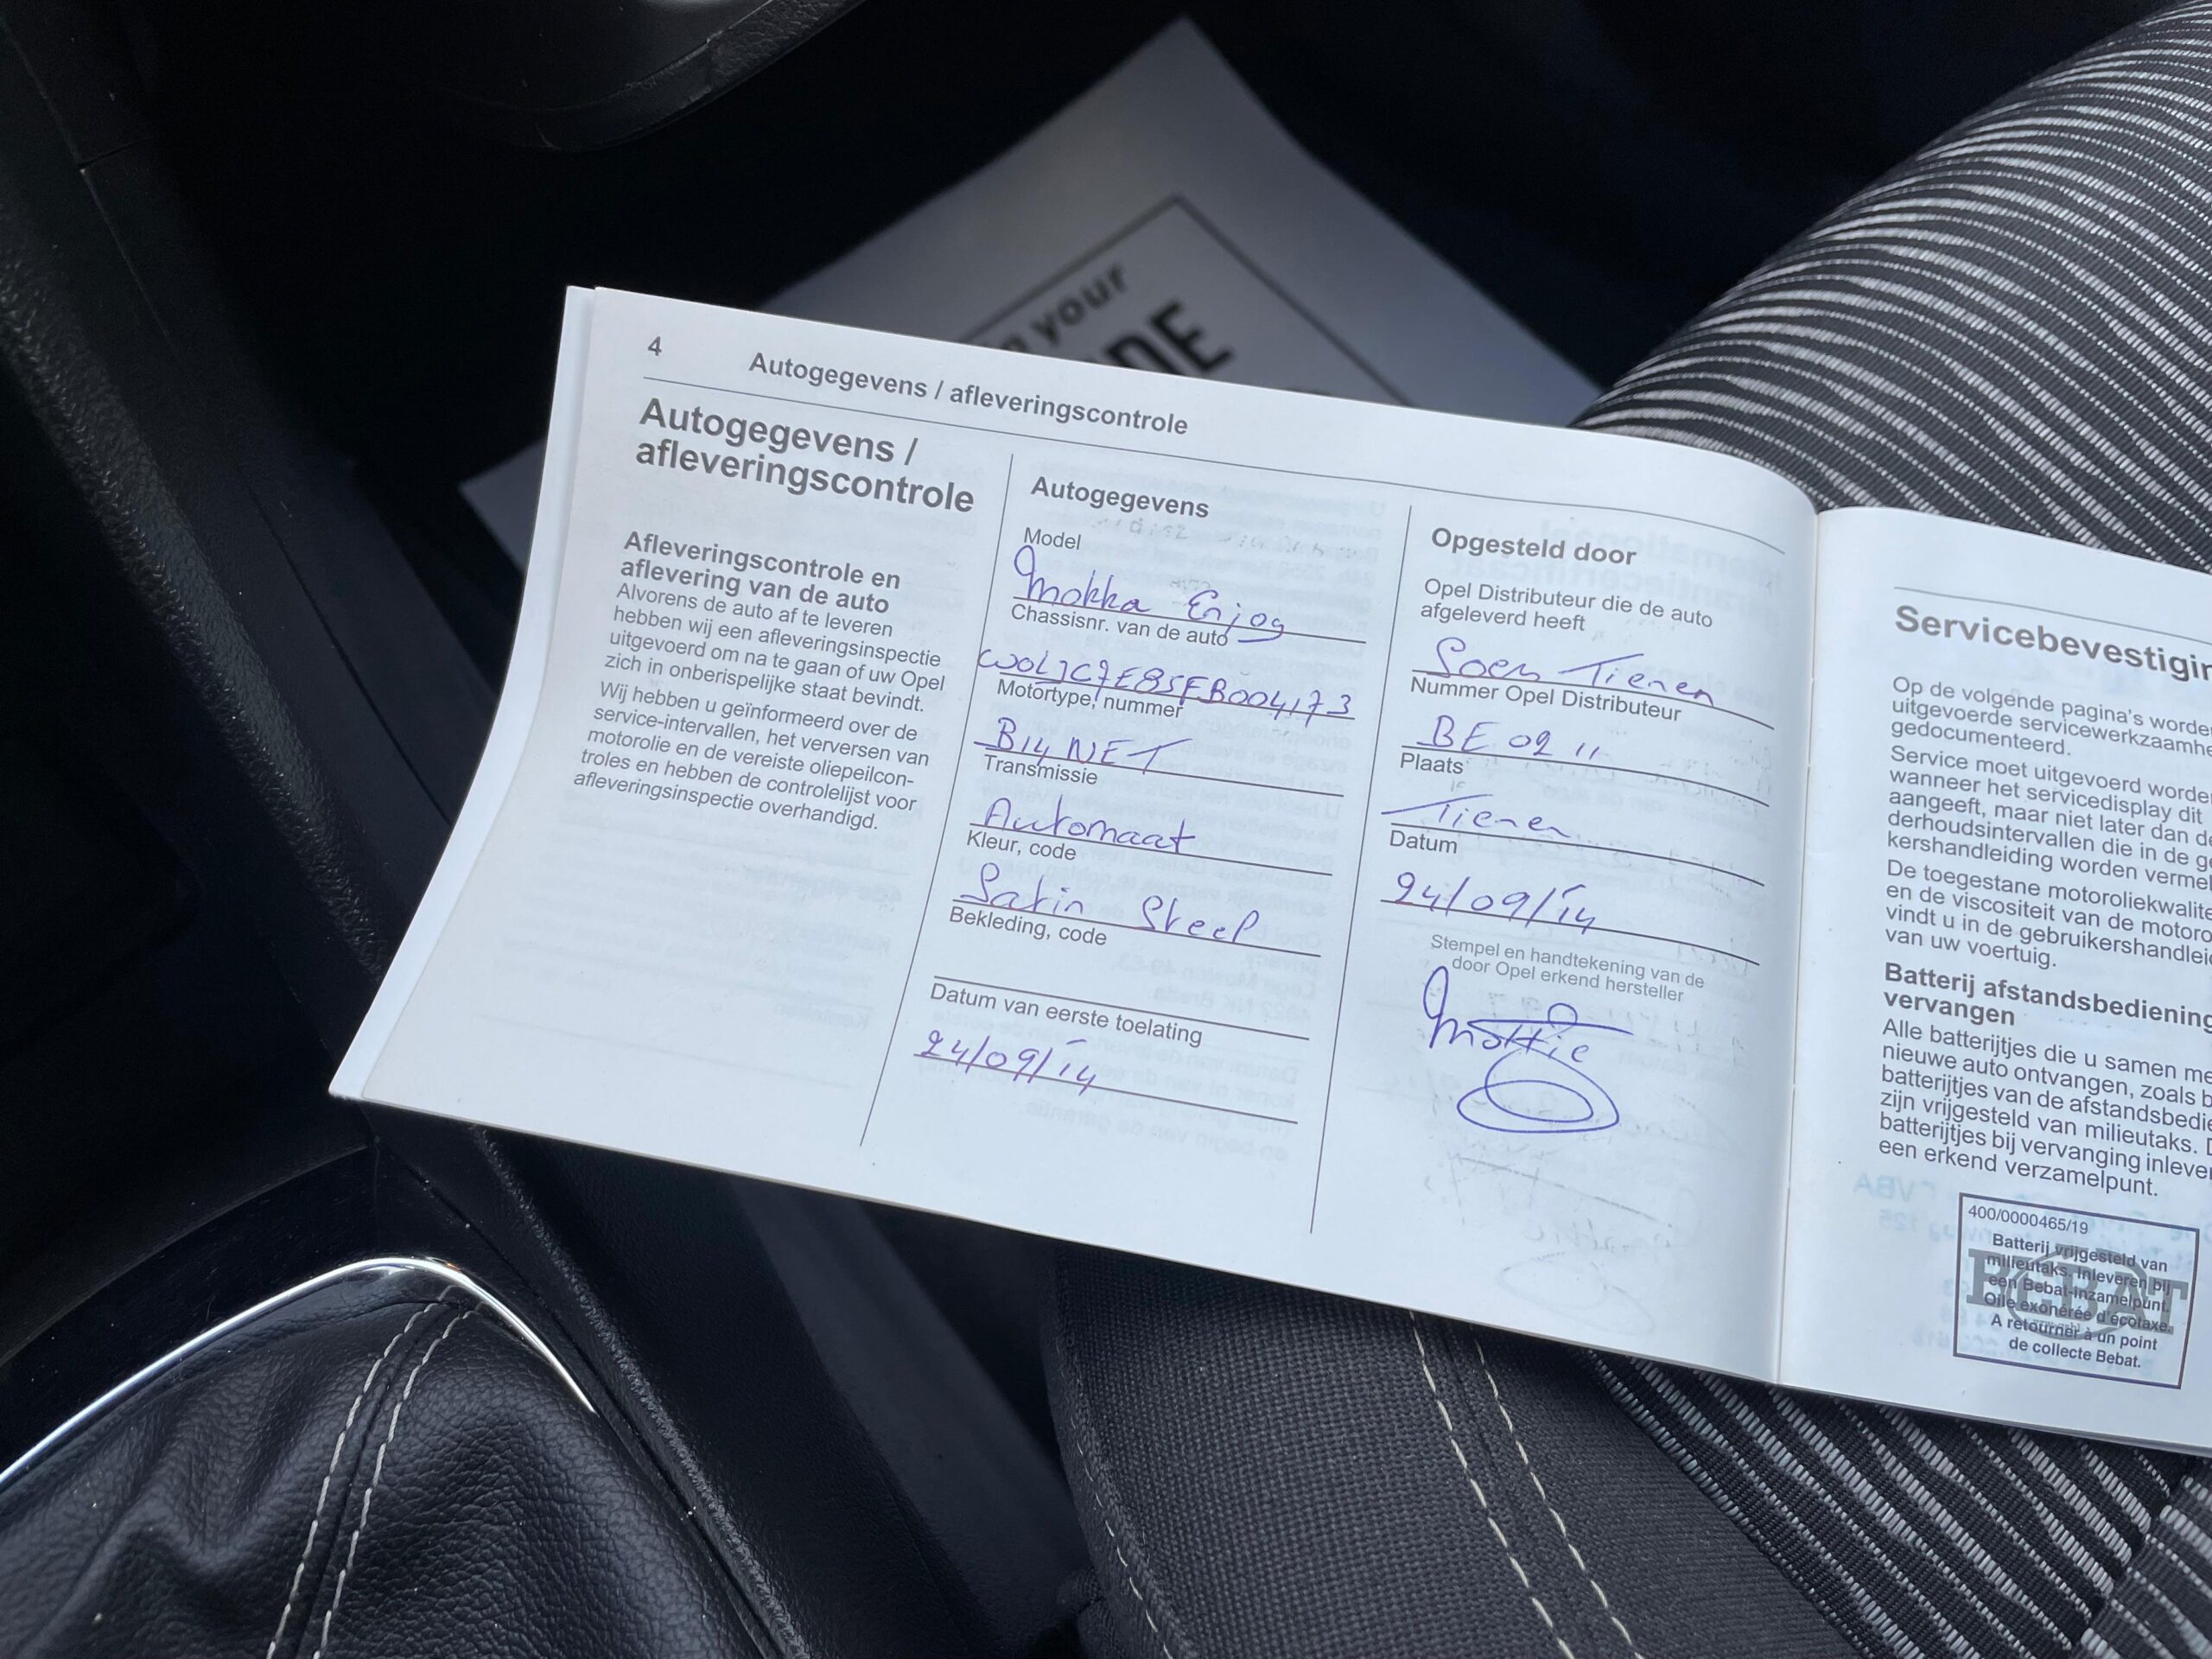 n your
DE
4
Autogegevens / afleveringscontrole
Autogegevens /
afleveringscontrole
Afleveringscontrole en
aflevering van de auto
Alvorens de auto af te leveren
hebben wij een afleveringsinspectie
uitgevoerd om na te gaan of uw Opel
zich in onberispelijke staat bevindt.
Wij hebben u geïnformeerd over de
service-intervallen, het verversen van
motorolie en de vereiste oliepeilcon-
troles en hebben de controlelijst voor
afleveringsinspectie overhandigd.
Autogegevens
Model
Mokka Enjoy
Chassisnr. van de auto
W0LJC7E85FB004173
Motortype, nummer
B14NET
Transmissie
Automaat
Kleur, code
Satin Steel
Bekleding, code
Datum van eerste toelating
24/09/14
Opgesteld door
Opel Distributeur die de auto
afgeleverd heeft
Tienen
Nummer Opel Distributeur
BE 02 11
Plaats
Tienen
Datum
24/09/14
Stempel en handtekening van de
door Opel erkend hersteller
Servicebevestigin
Op de volgende pagina's worde
uitgevoerde servicewerkzaamhe
gedocumenteerd.
Service moet uitgevoerd worde
wanneer het servicedisplay dit
aangeeft, maar niet later dan de
derhoudsintervallen die in de ge
kershandleiding worden vermel
De toegestane motoroliekwalite
en de viscositeit van de motoro
vindt u in de gebruikershandleid
van uw voertuig.
Batterij afstandsbediening
vervangen
Alle batterijtjes die u samen me
nieuwe auto ontvangen, zoals b
batterijtjes van de afstandsbedie
zijn vrijgesteld van milieutaks. D
batterijtjes bij vervanging inlever
een erkend verzamelpunt.
400/0000465/19
BEBAT
Batterij vrijgesteld van
milieutaks. Inleveren bij
een Bebat-inzamelpunt.
Oile exonérée d'écotaxe.
A retourner à un point
de collecte Bebat.